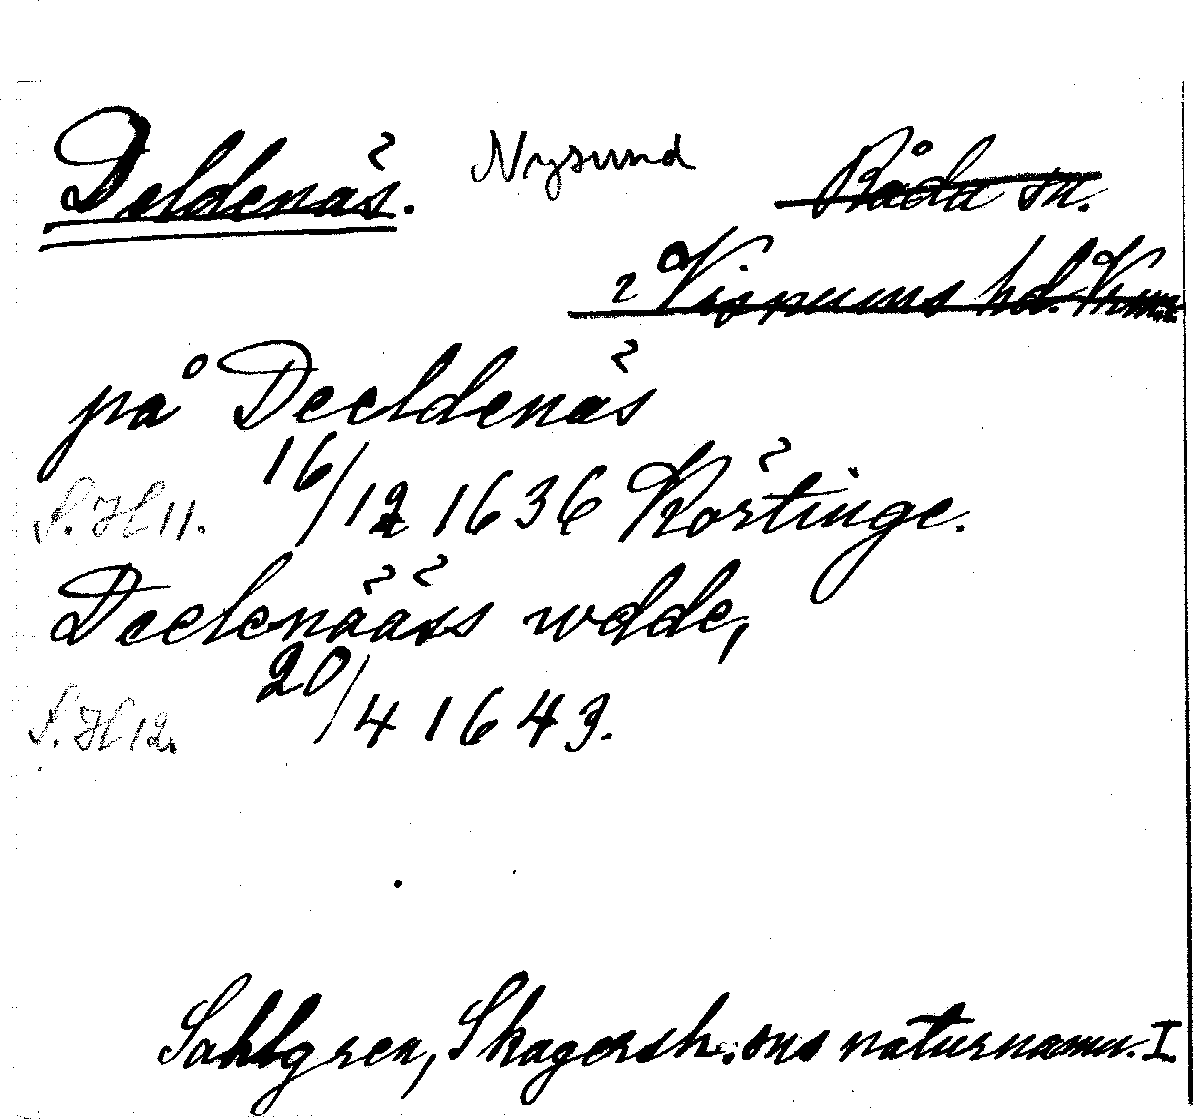 Deldenäs. Nysund Råda sn.
Visnums hd. Vrml.
på Deeldenäs
S. H 11. 16/12 1636 Körtinge.
Deelenääss udde,
S. H 12. 20/4 1643.
Sahlgren, Skagersh. sns naturnamn. I.